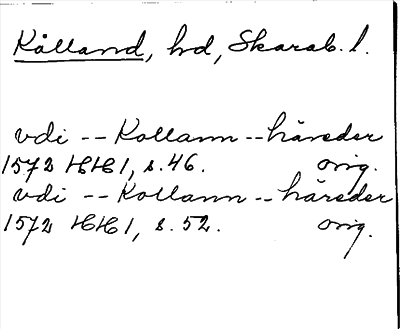 Kålland, hd, Skarab. l.
vdi -- Kollann -- häreder
1572 HH 1, s. 46. orig.
vdi -- Kollann -- häreder
1572 HH 1, s. 52. orig.